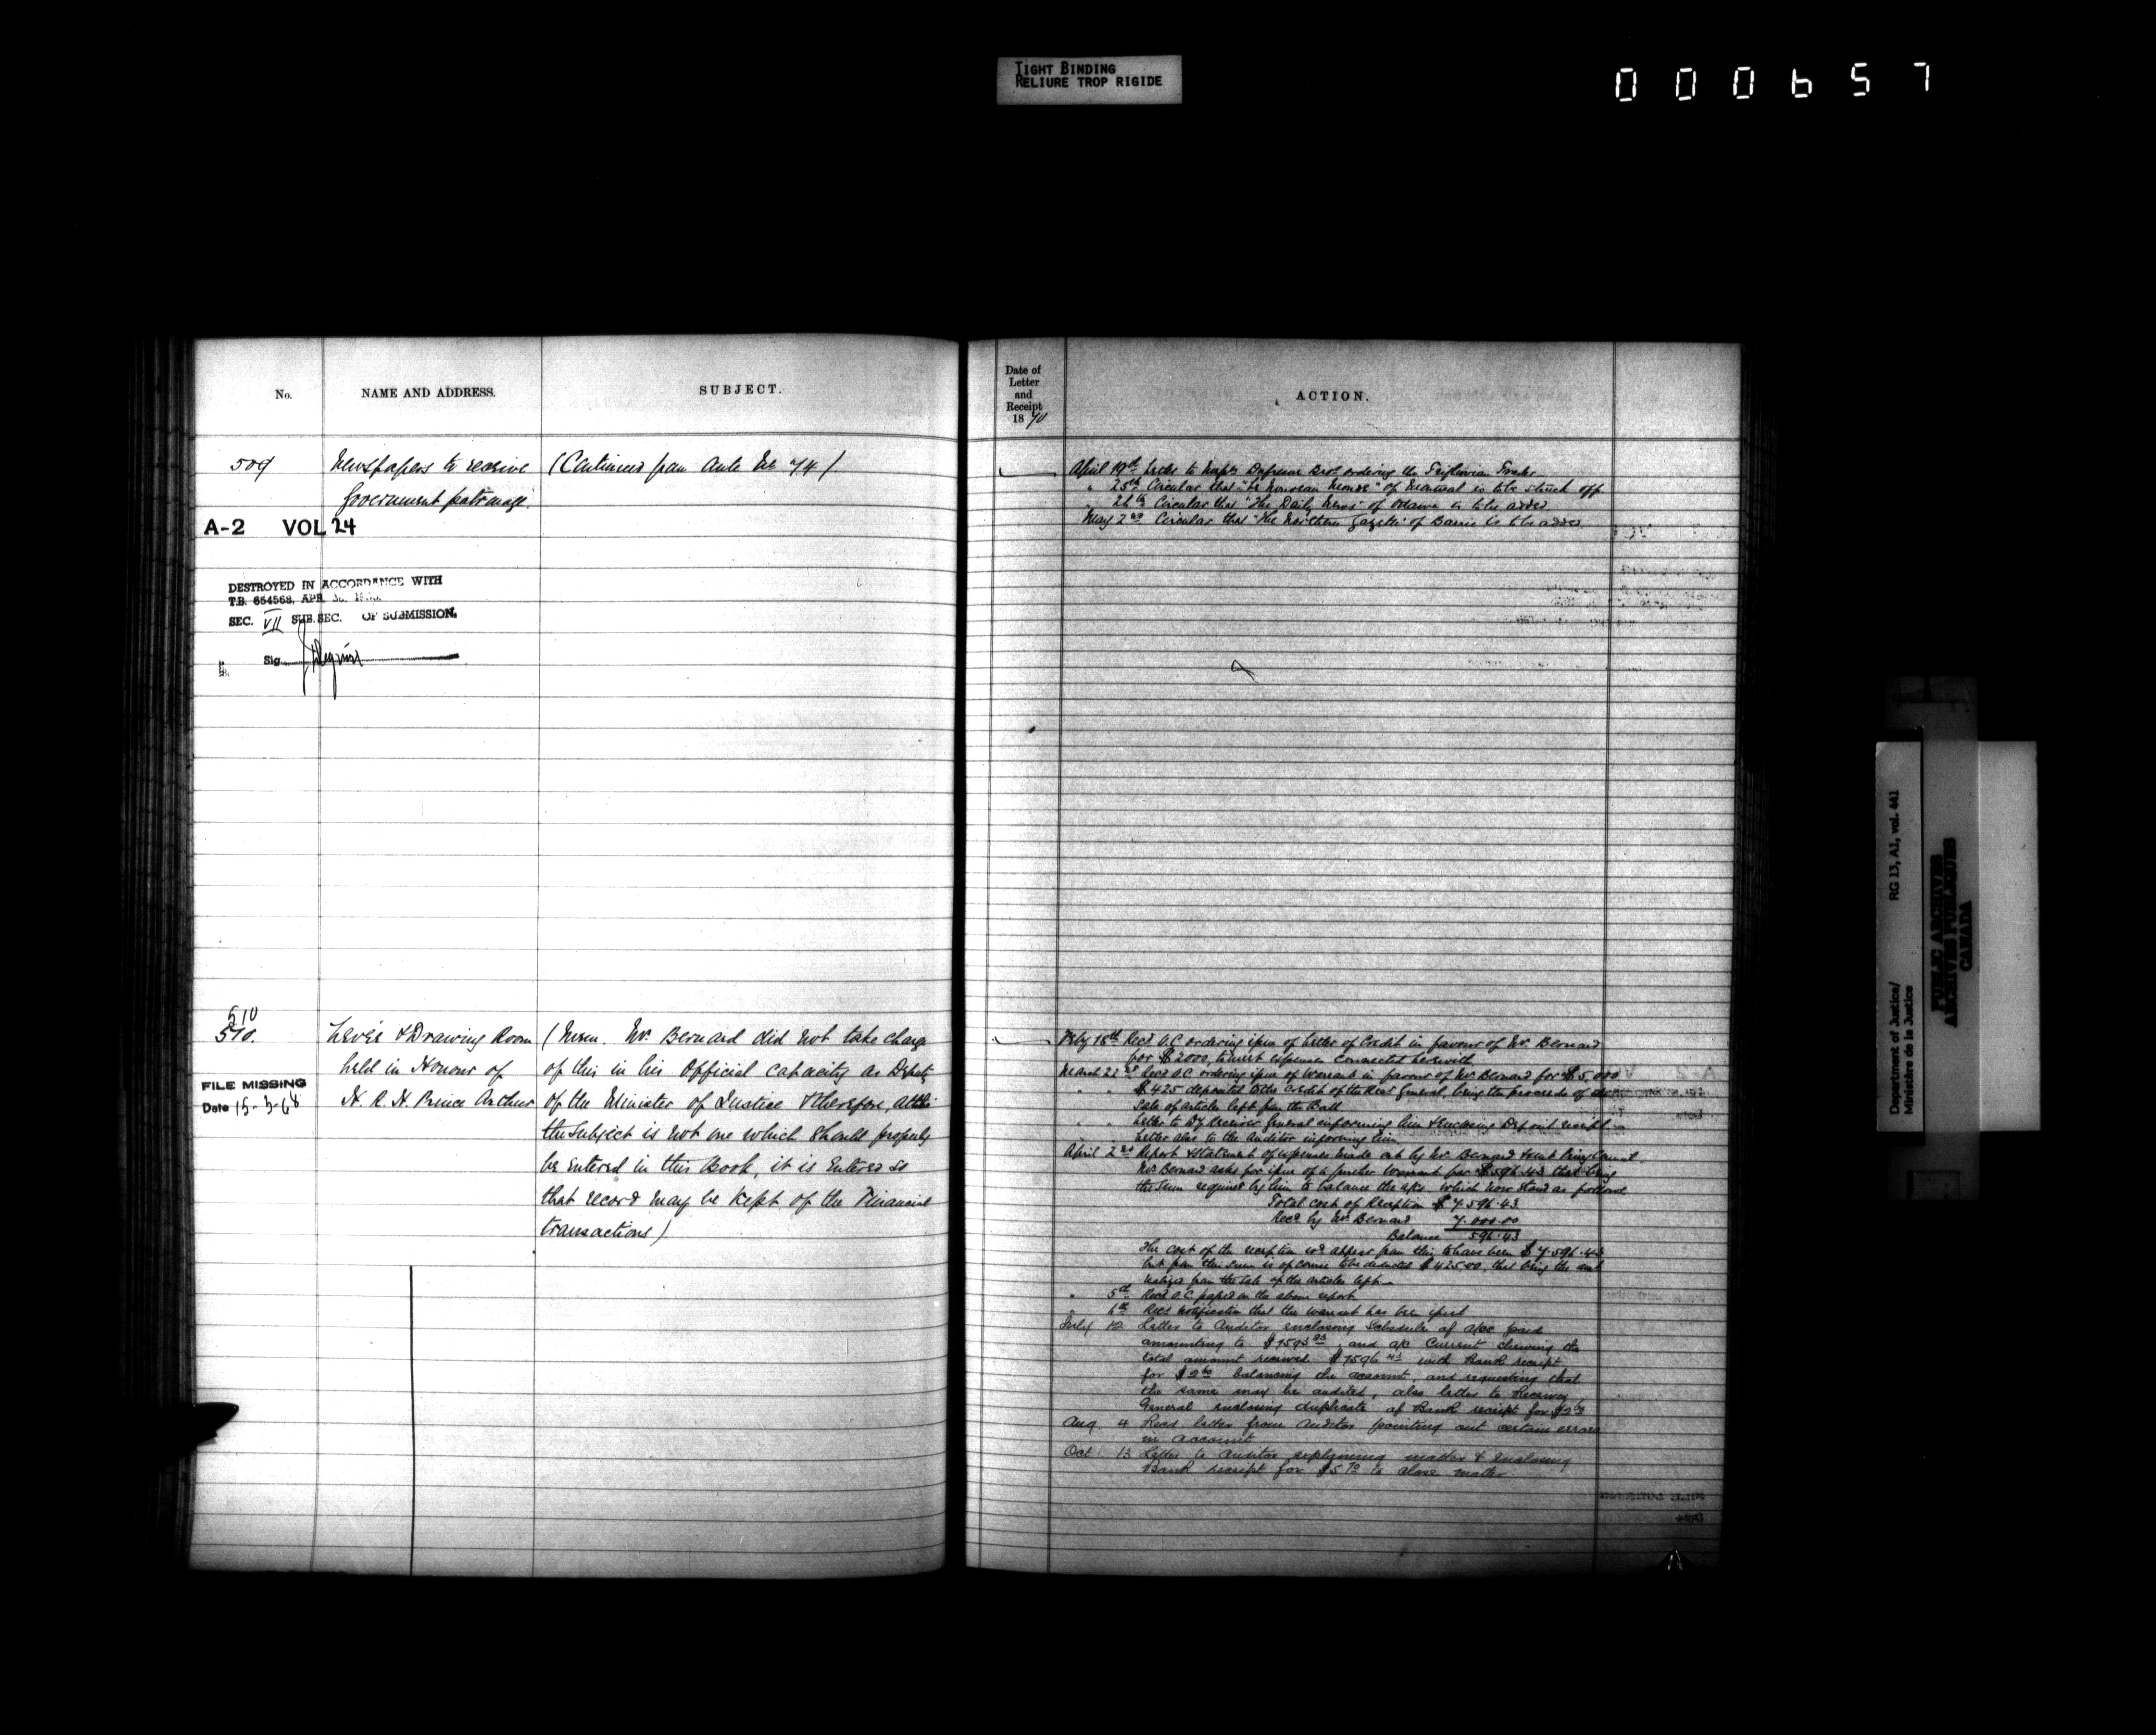 TIGHT BINDING
RELIURE TROP RIGIDE
000657
No.
NAME AND ADDRESS.
SUBJECT.
509
Newspapers to receive
Government patronage.
(Continued from Ante No 74)
A-2 VOL 24
DESTROYED IN ACCORDANCE WITH
T.B. 654568, APR
SEC. VII SUB. SEC. OF SUBMISSION.
Sig.
510
510.
Levée & Drawing Room
held in Honour of
H. R. H. Prince Arthur
FILE MISSING
Date 15-5-68
(Mem. Mr. Bernard did not take charge
of this in his Official capacity as Deputy
of the Minister of Justice & therefore, altho
the subject is not one which should properly
be entered in this Book, it is Entered so
that record may be kept of the Financial
transactions)
Date of
Letter
and
Receipt
1870
ACTION.
April 19th Letter to Messrs Dufresne Bros ordering the
" 25th Circular that "Le Nouveau Monde" of Montreal is to be struck off
" 26th Circular that "The Daily News" of Ottawa is to be added
May 2nd Circular that "The Northern Gazette" of Barrie is to be added
Feby 18th Recd O.C. ordering issue of Letter of Credit in favour of Mr. Bernard
for $2000, to meet expenses connected herewith
March 22nd Recd O.C. ordering issue of Warrant in favour of Mr Bernard for $5,000
" " $425 deposited to the credit of the Recr General, being the proceeds of
Sale of articles left from the Ball
" " Letter to Dy Receiver General informing him & enclosing Deposit receipt
" " Letter also to the Auditor informing him
April 2nd Report & Statement of expenses made out by Mr Bernard & sent Privy Council
Mr Bernard asks for issue of a further Warrant for $596.43 that being
the sum required by him to balance the a/cs which now stand as follows
Total cost of Reception $7.596.43
Recd by Mr Bernard 7.000.00
Balance 596.43
The cost of the reception wd appear from this to have been $7.596.43
but from this sum is of course to be deducted $425.00, that being the amt
realized from the sale of the articles left
" 5th Recd O.C. passed on the above report
" 6th Recd notification that the warrant has been issued
July 12 Letter to Auditor enclosing Schedule of a/cs paid
amounting to $7593 and a/c Current shewing the
total amount received $7596 43 with Bank receipt
for $2 balancing the account, and requesting that
the same may be audited, also letter to Receiver
General enclosing duplicate of Bank receipt for $2
Aug 4 Recd letter from Auditor pointing out certain errors
in account
Oct. 13 Letter to Auditor explaining matter & enclosing
Bank receipt for $5 to close matter
Department of Justice/ RG 13, A1, vol. 441
Ministère de la Justice
PUBLIC ARCHIVES
ARCHIVES PUBLIQUES
CANADA